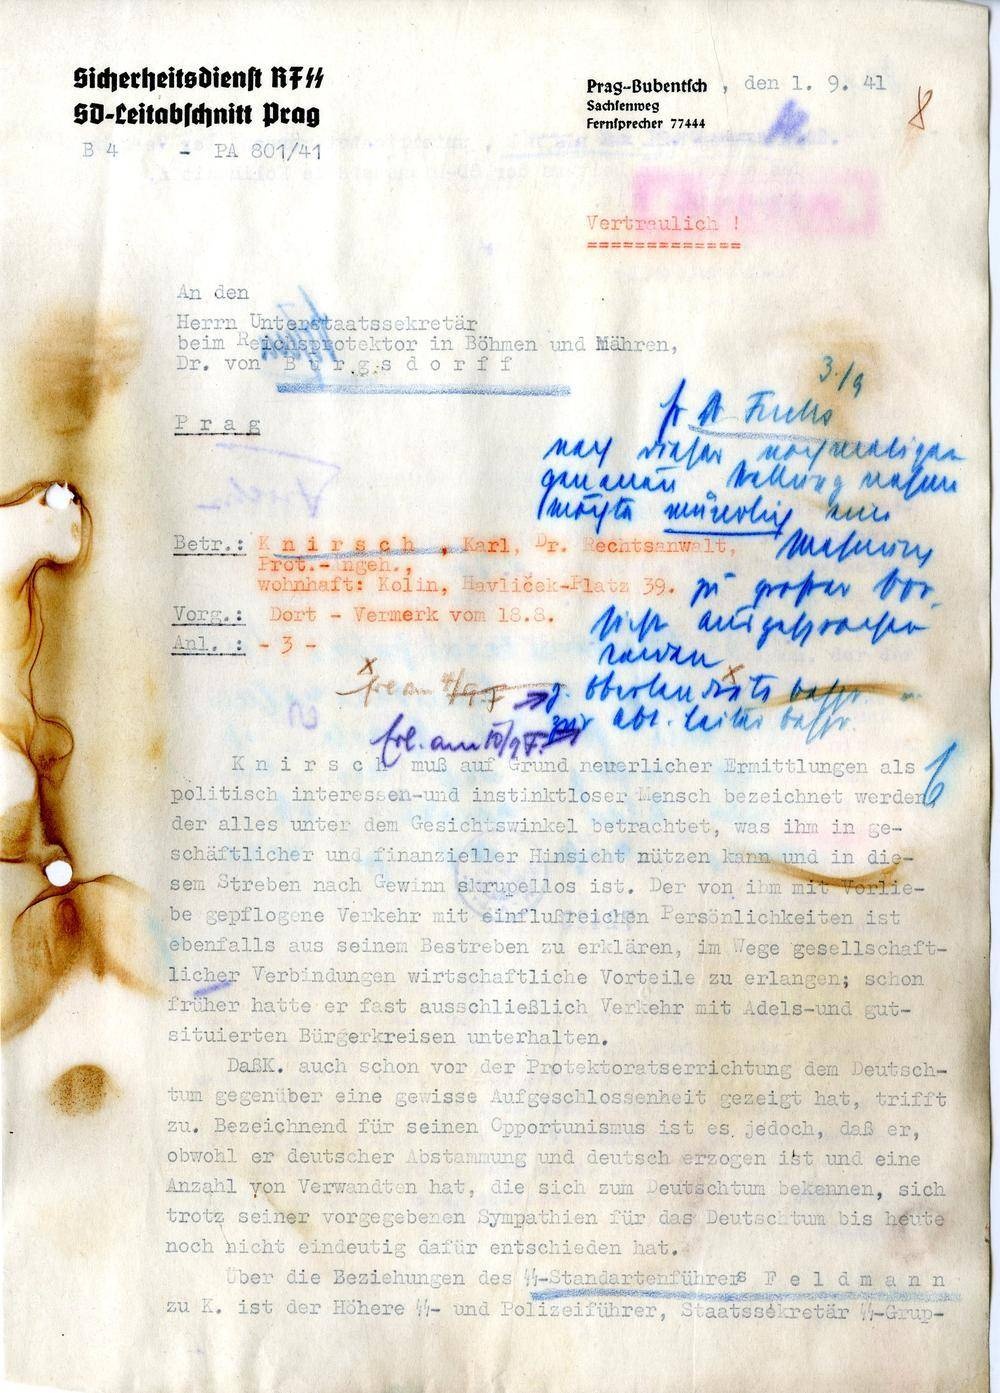 Sicherheitsdienst RFSS
SD-Leitabschnitt Prag
B 4 - PA 801/41
Prag-Bubentsch, den 1. 9. 41
Sachsenweg
Fernsprecher 77444
8
Vertraulich !
=============
An den
Herrn Unterstaatssekretär
beim Reichsprotektor in Böhmen und Mähren,
Dr. von B u r g s d o r f f
P r a g
3./9
Dr Fuchs
nach dieser nochmaligen
genauen
möchte mündlich eine
Warnung
zu großer Vor-
sicht ausgesprochen
werden
Betr.: K n i r s c h , Karl, Dr. Rechtsanwalt,
Prot.-Angeh.,
wohnhaft: Kolin, Havliček-Platz 39.
Vorg.: Dort - Vermerk vom 18.8.
Anl. : - 3 -
K n i r s c h muß auf Grund neuerlicher Ermittlungen als
politisch interessen-und instinktloser Mensch bezeichnet werden,
der alles unter dem Gesichtswinkel betrachtet, was ihm in ge-
schäftlicher und finanzieller Hinsicht nützen kann und in die-
sem Streben nach Gewinn skrupellos ist. Der von ihm mit Vorlie-
be gepflogene Verkehr mit einflußreichen Persönlichkeiten ist
ebenfalls aus seinem Bestreben zu erklären, im Wege gesellschaft-
licher Verbindungen wirtschaftliche Vorteile zu erlangen; schon
früher hatte er fast ausschließlich Verkehr mit Adels-und gut-
situierten Bürgerkreisen unterhalten.
DaßK. auch schon vor der Protektoratserrichtung dem Deutsch-
tum gegenüber eine gewisse Aufgeschlossenheit gezeigt hat, trifft
zu. Bezeichnend für seinen Opportunismus ist es jedoch, daß er,
obwohl er deutscher Abstammung und deutsch erzogen ist und eine
Anzahl von Verwandten hat, die sich zum Deutschtum bekennen, sich
trotz seiner vorgegebenen Sympathien für das Deutschtum bis heute
noch nicht eindeutig dafür entschieden hat.
Über die Beziehungen des SS-Standartenführers F e l d m a n n
zu K. ist der Höhere SS- und Polizeiführer, Staatssekretär SS-Grup-